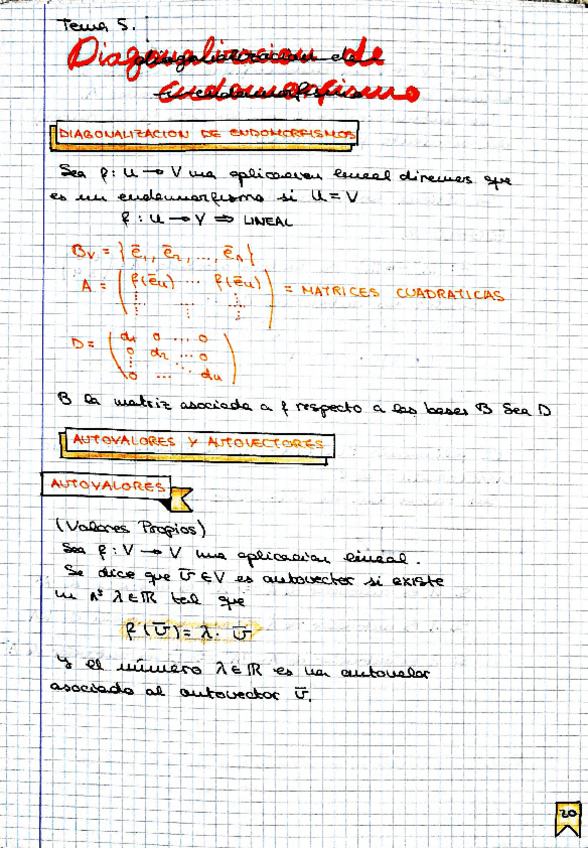 Tema 5.
Diagonalización de
endomorfismo
DIAGONALIZACION DE ENDOMORFISMOS
Sea f: U → V una aplicacion lineal diremos que
es un endomorfismo si U = V
f: U → V ⇒ LINEAL
Bv = { ē₁, ē₂, ..., ēₙ }
A = ( f(ēu) ... f(ēu) ) = MATRICES CUADRATICAS
D = ( d₁ 0 ... 0
0 d₂ ... 0
0 ... du )
B la matriz asociada a f respecto a las bases B Sea D
AUTOVALORES Y AUTOVECTORES
AUTOVALORES
(Valores Propios)
Sea f: V → V una aplicacion lineal.
Se dice que v̄ ∈ V es autovector si existe
un nº λ ∈ ℝ tal que
f(v̄) = λ · v̄
Y el número λ ∈ ℝ es un autovalor
asociado al autovector v̄.
20